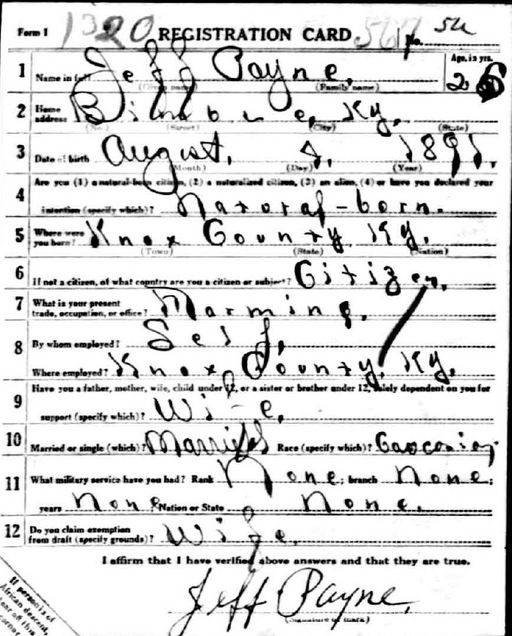 Form 1 1320 REGISTRATION CARD No. 54
1 Name in full Jeff Payne, Age, in yrs. 26
(Given name) (Family name)
2 Home address Bimble, Ky,
(No.) (Street) (City) (State)
3 Date of birth August, 1891,
(Month) (Day) (Year)
Are you (1) a natural-born citizen, (2) a naturalized citizen, (3) an alien, (4) or have you declared your
4 intention (specify which)? Natoral-born.
5 Where were you born? Knox County Ky.
(Town) (State) (Nation)
6 If not a citizen, of what country are you a citizen or subject? Citizen,
7 What is your present trade, occupation, or office? Farming,
8 By whom employed? Self,
Where employed? Knox County, Ky,
Have you a father, mother, wife, child under 12, or a sister or brother under 12, solely dependent on you for
9 support (specify which)? Wife,
10 Married or single (which)? Married Race (specify which)?
11 What military service have you had? Rank None; branch None;
years None Nation or State None.
12 Do you claim exemption from draft (specify grounds)? Wife.
I affirm that I have verified above answers and that they are true.
Jeff Payne,
(Signature or mark)
If person is of
African descent,
tear off this
corner